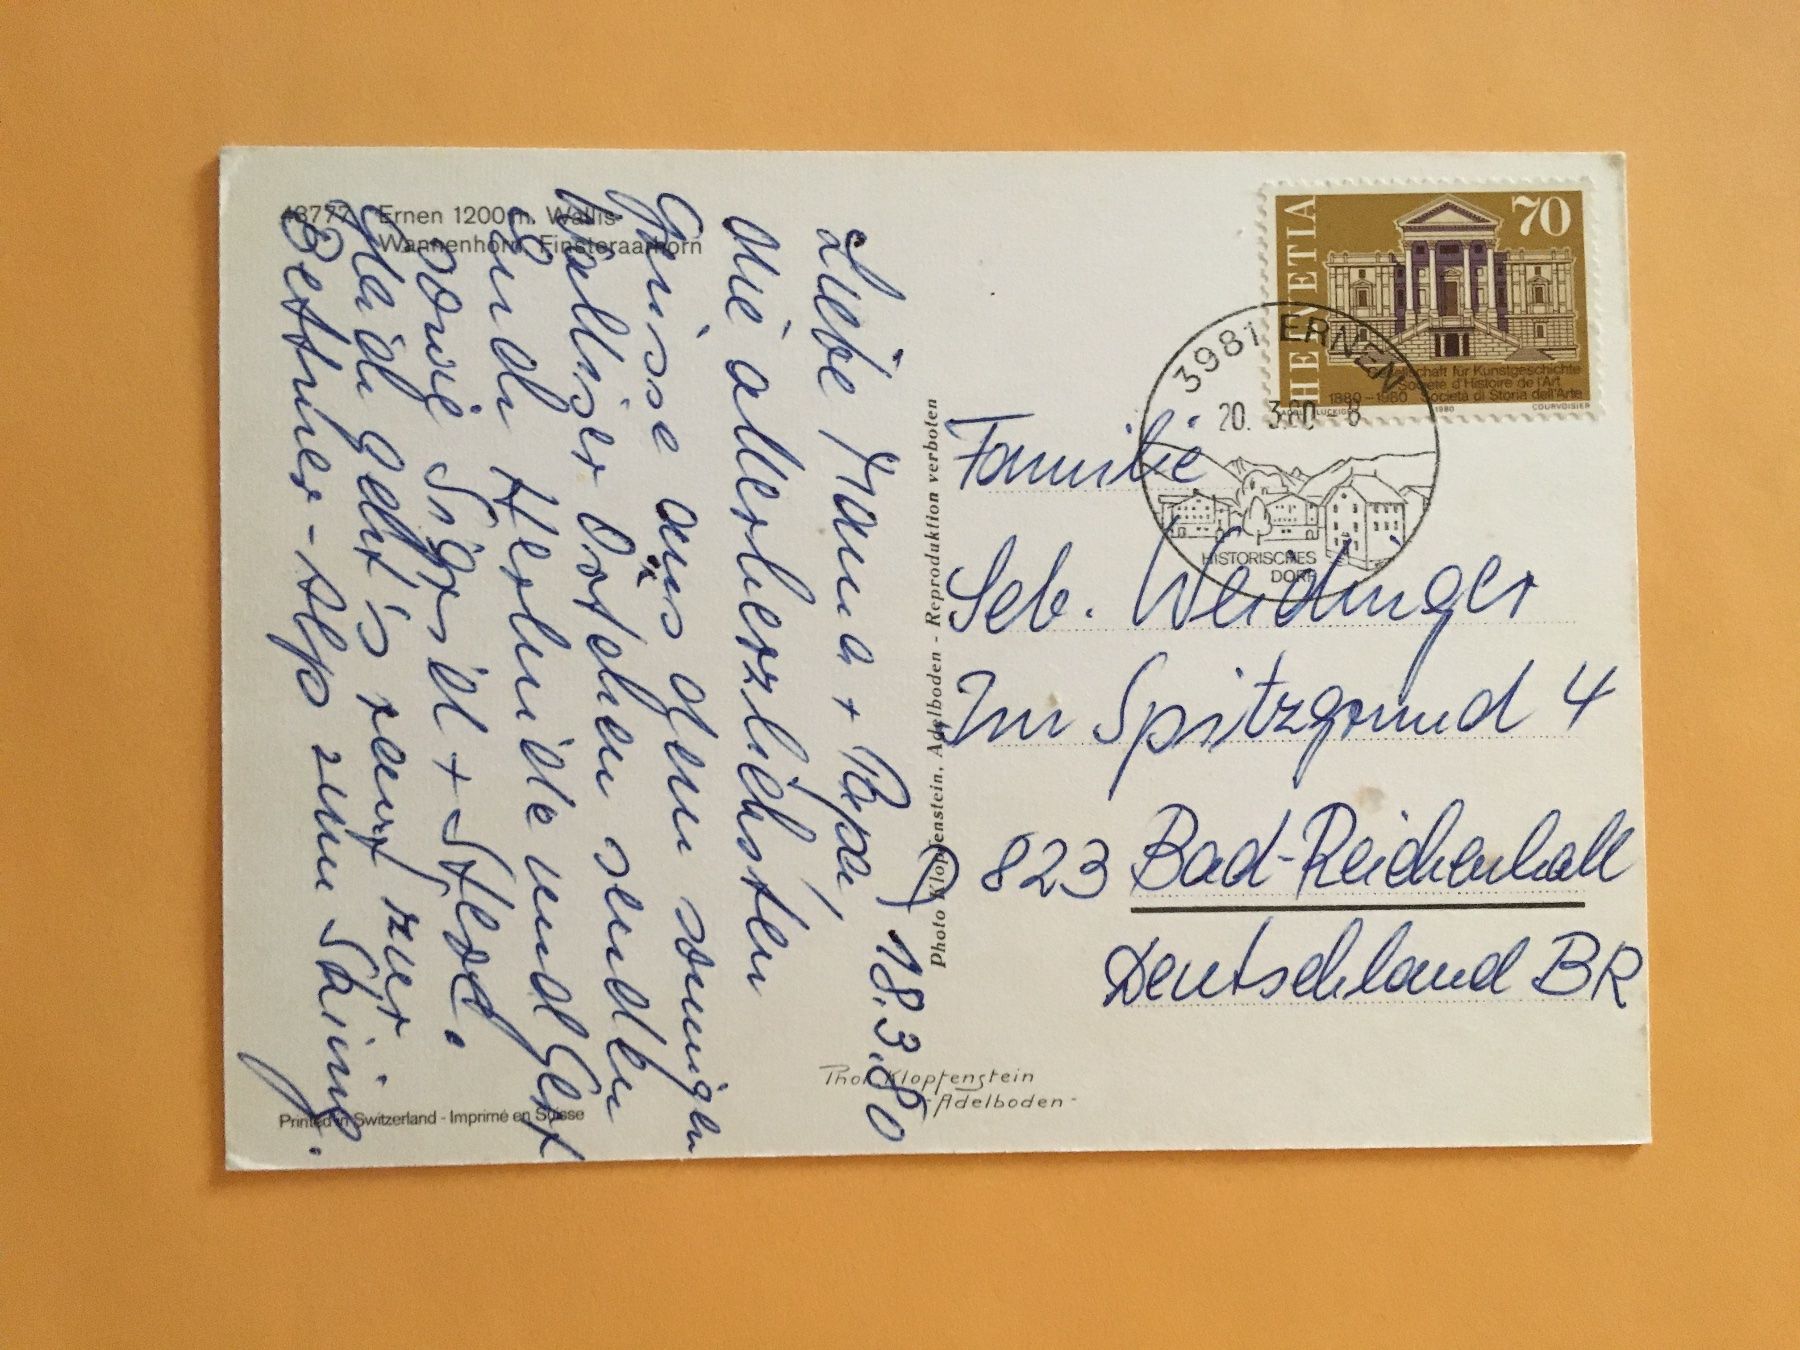 43777 Ernen 1200 m. Wallis
Wannenhorn, Finsteraarhorn
18.3.80
Liebe Mama + Papa,
die allerherzlichsten
Grüsse aus dem sonnigen
Walliser Örtchen senden
Euch Herlinde und Gert
sowie Sigrid + Sferd.
Heidi geht's rauf zur
Bettmer-Alp zum Skiing.
Printed in Switzerland - Imprimé en Suisse
Photo Klopfenstein, Adelboden - Reproduktion verboten
Phot Klopfenstein
- Adelboden -
HELVETIA
70
Gesellschaft für Kunstgeschichte
Société d'Histoire de l'Art
1880-1980 Società di Storia dell'Arte
1980 COURVOISIER
3981 ERNEN
20. 3.80 - 8
HISTORISCHES
DORF
Familie
Seb. Weidinger
Im Spitzgrund 4
D 823 Bad-Reichenhall
Deutschland BR